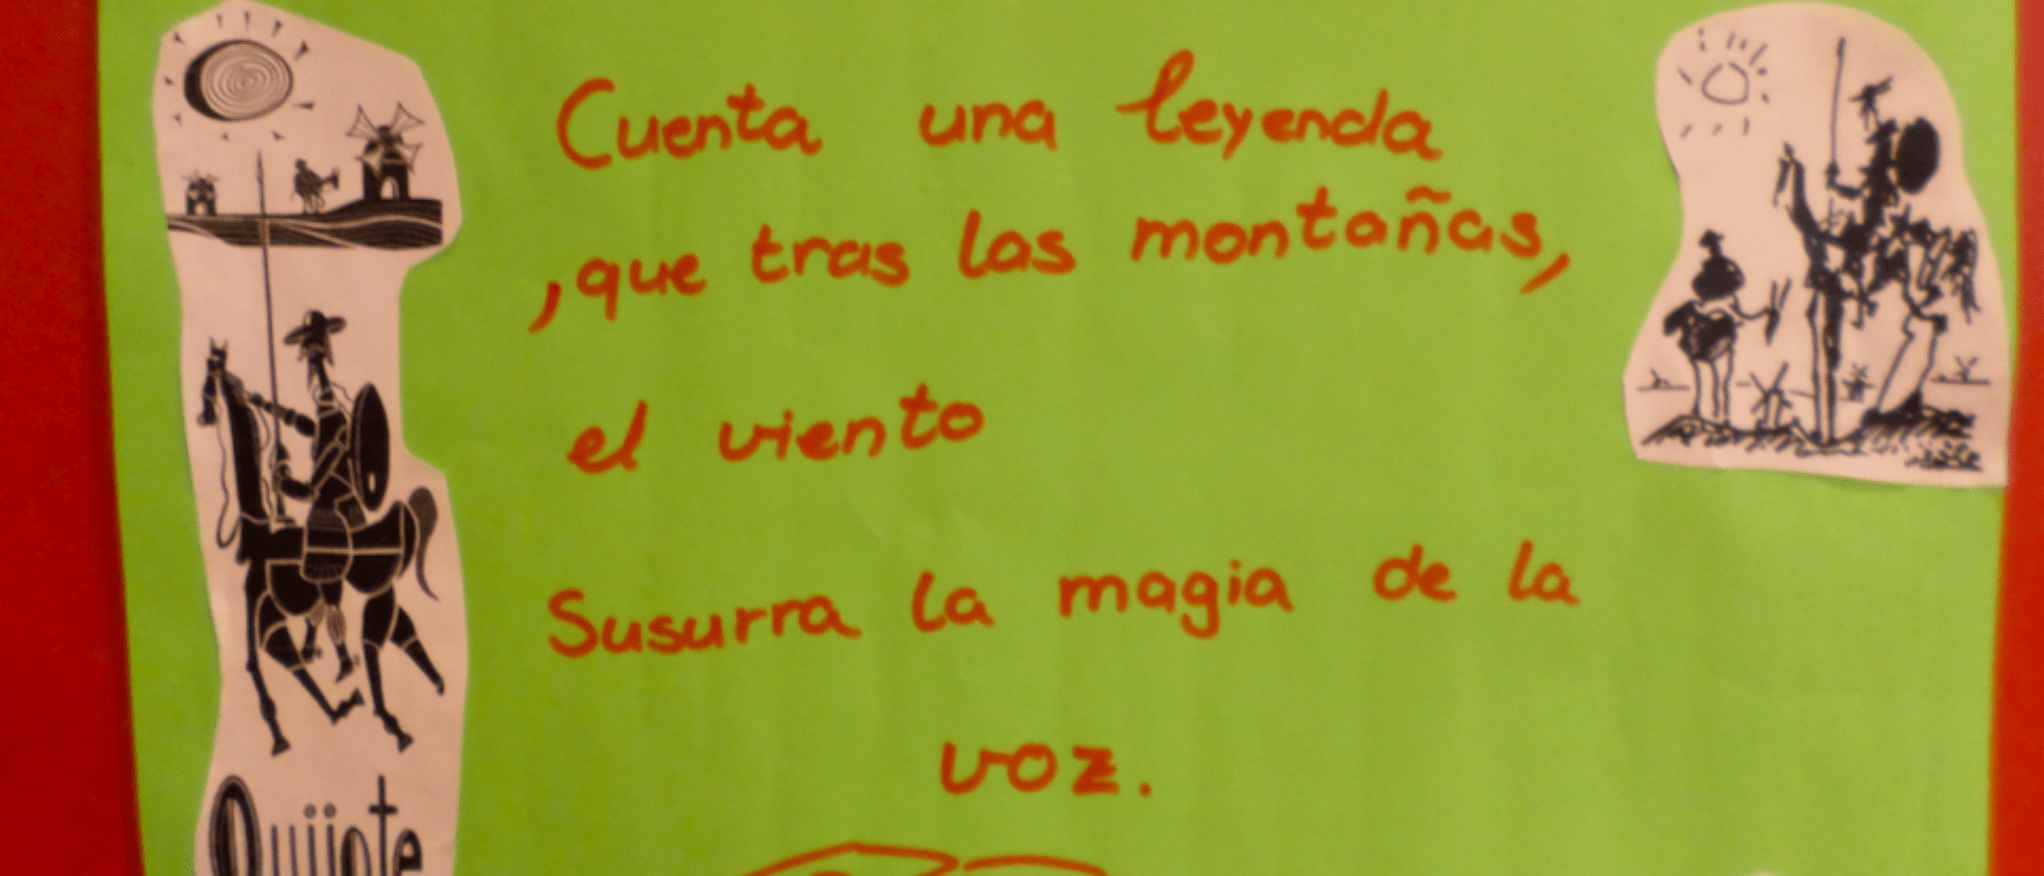 Cuenta una leyenda
,que tras las montañas,
el viento
Susurra la magia de la
voz.
Quijote